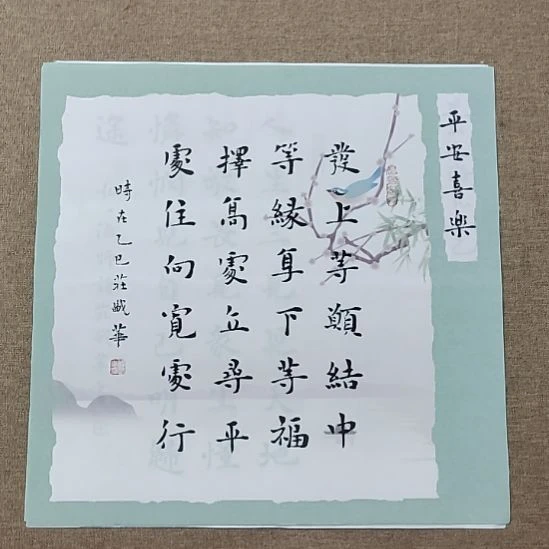 平安喜樂
發上等願結中
等緣享下等福
擇高處立尋平
處住向寬處行
時在乙巳莊華